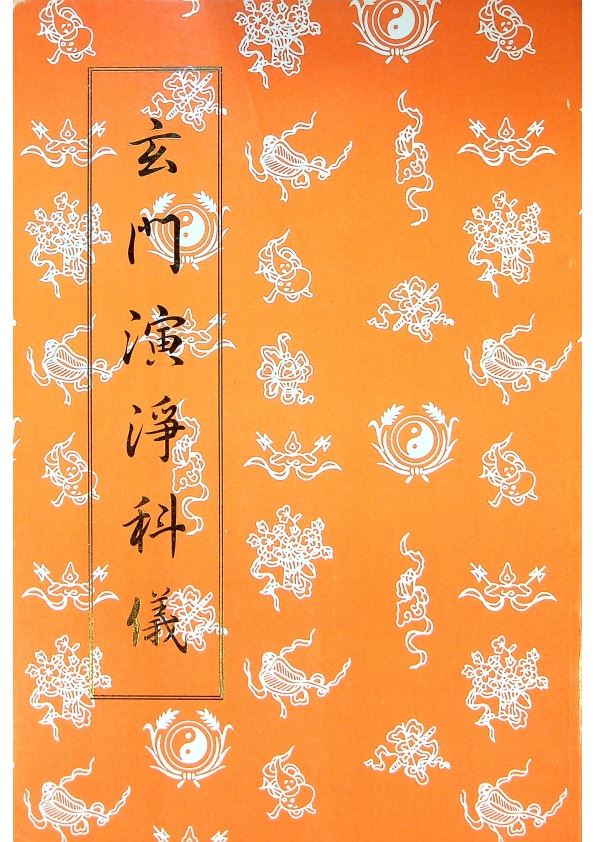 玄門演淨科儀